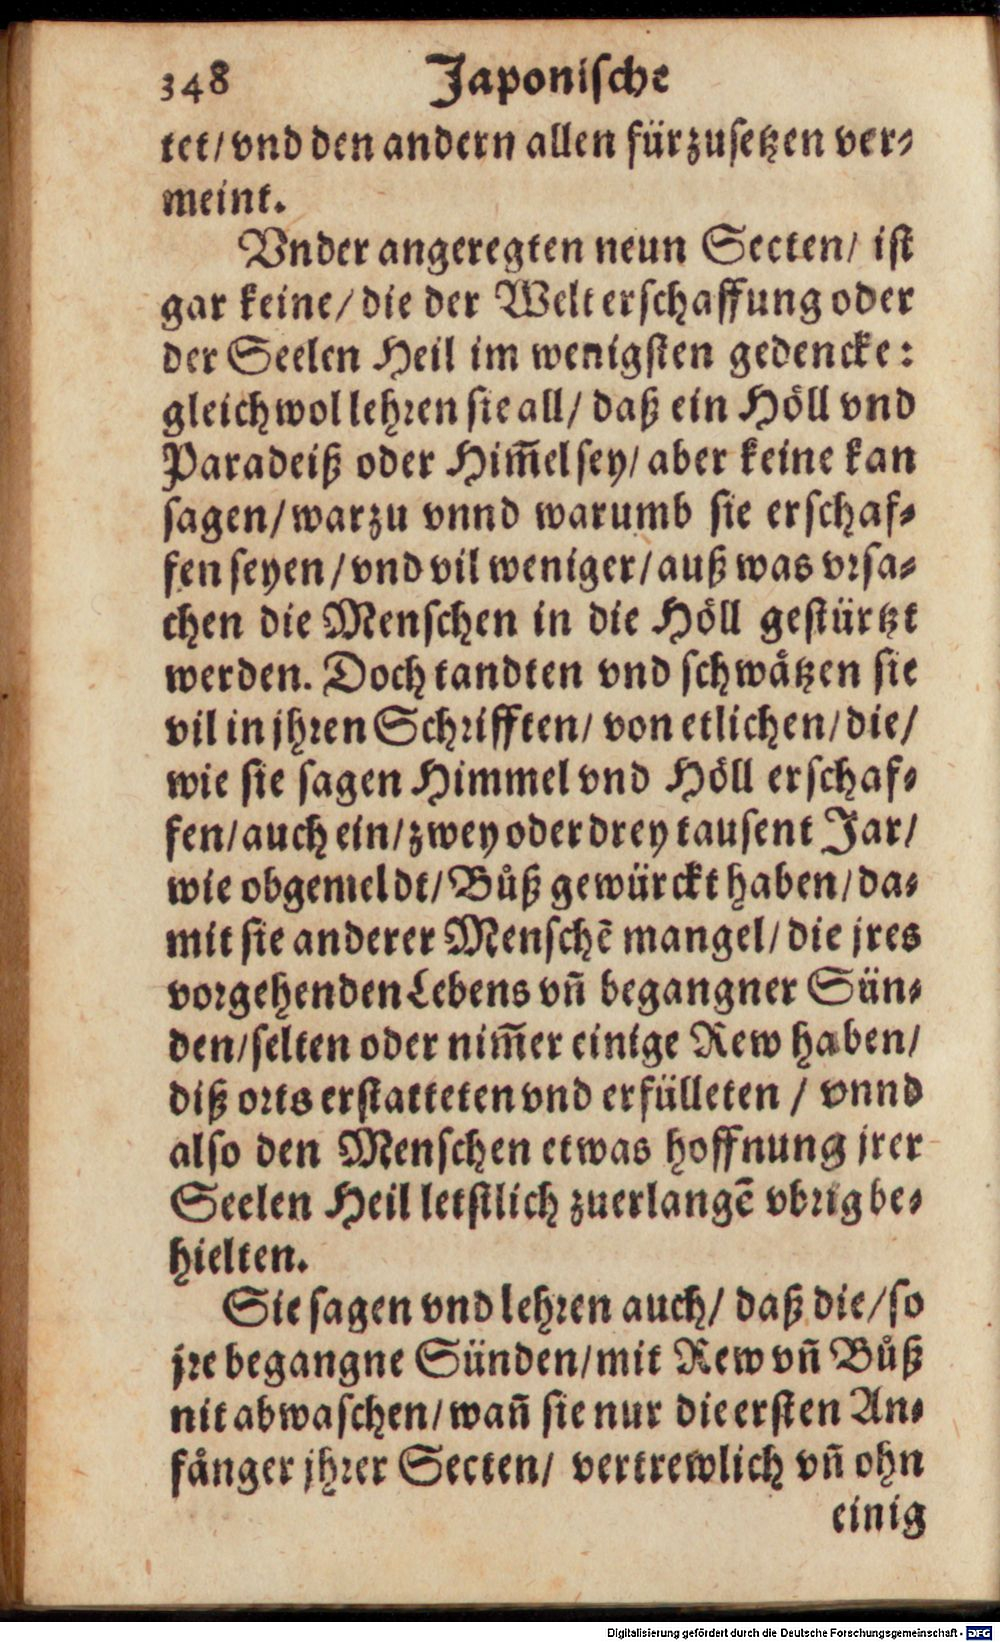 348 Japonische
tet/ vnd den andern allen fürzusetzen ver⸗
meint.
Vnder angeregten neun Secten/ ist
gar keine/ die der Welt erschaffung oder
der Seelen Heil im wenigsten gedencke:
gleichwol lehren sie all/ daß ein Höll vnd
Paradeiß oder Him̅el sey/ aber keine kan
sagen/ warzu vnnd warumb sie erschaf⸗
fen seyen/ vnd vil weniger/ auß was vrsa⸗
chen die Menschen in die Höll gestürtzt
werden. Doch tandten vnd schwaͤtzen sie
vil in jhren Schrifften/ von etlichen/ die/
wie sie sagen Himmel vnd Höll erschaf⸗
fen/ auch ein/ zwey oder drey tausent Jar/
wie obgemeldt/ Bůß gewürckt haben/ da⸗
mit sie anderer Menschē mangel/ die jres
vorgehenden Lebens vn̅ begangner Sün⸗
den/ selten oder nim̅er einige Rew haben/
diß orts erstatteten vnd erfülleten / vnnd
also den Menschen etwas hoffnung jrer
Seelen Heil letstlich zuerlangē vbrig be⸗
hielten.
Sie sagen vnd lehren auch/ daß die/ so
jre begangne Sünden/ mit Rew vn̅ Bůß
nit abwaschen/ wan̅ sie nur die ersten An⸗
faͤnger jhrer Secten/ vertrewlich vn̅ ohn
einig
Digitalisierung gefördert durch die Deutsche Forschungsgemeinschaft - DFG